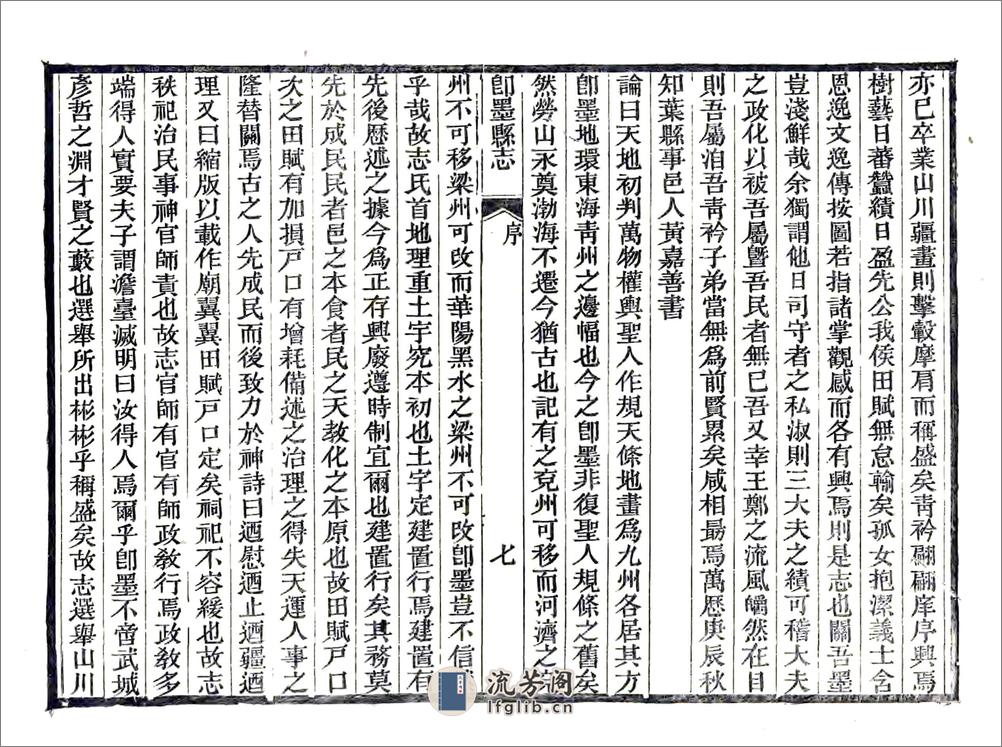 亦已卒業山川疆畫則擊轂摩肩而稱盛矣靑衿翩翩庠序興焉
樹藝日蕃蠶績日盈先公我侯田賦無怠輸矣孤女抱潔義士含
恩逸文逸傳按圖若指諸掌觀感而各有興焉則是志也關吾墨
豈淺鮮哉余獨謂他日司守者之私淑則三大夫之績可稽大夫
之政化以被吾屬曁吾民者無已吾又幸王鄭之流風皭然在目
則吾屬洎吾靑衿子弟當無爲前賢累矣咸相最焉萬歷庚辰秋
知葉縣事邑人黃嘉善書
論曰天地初判萬物權輿聖人作規天條地畫爲九州各居其方
卽墨地環東海靑州之邊幅也今之卽墨非復聖人規條之舊矣
然勞山永奠渤海不遷今猶古也記有之兗州可移而河濟之
卽墨縣志
序
七
州不可移梁州可改而華陽黑水之梁州不可改卽墨豈不信
乎哉故志氏首地理重土宇究本初也土宇定建置行焉建置有
先後歷述之據今爲正存興廢遵時制宜爾也建置行矣其務莫
先於成民民者邑之本食者民之天敎化之本原也故田賦戸口
次之田賦有加損戸口有增耗備述之治理之得失天運人事之
隆替關焉古之人先成民而後致力於神詩曰迺慰迺止迺疆迺
理又曰縮版以載作廟翼翼田賦戸口定矣祠祀不容緩也故志
秩祀治民事神官師責也故志官師有官有師政敎行焉政敎多
端得人實要夫子謂澹臺滅明曰汝得人焉爾乎卽墨不啻武城
彥哲之淵才賢之藪也選舉所出彬彬乎稱盛矣故志選舉山川
流芳阁
lfglib.cn